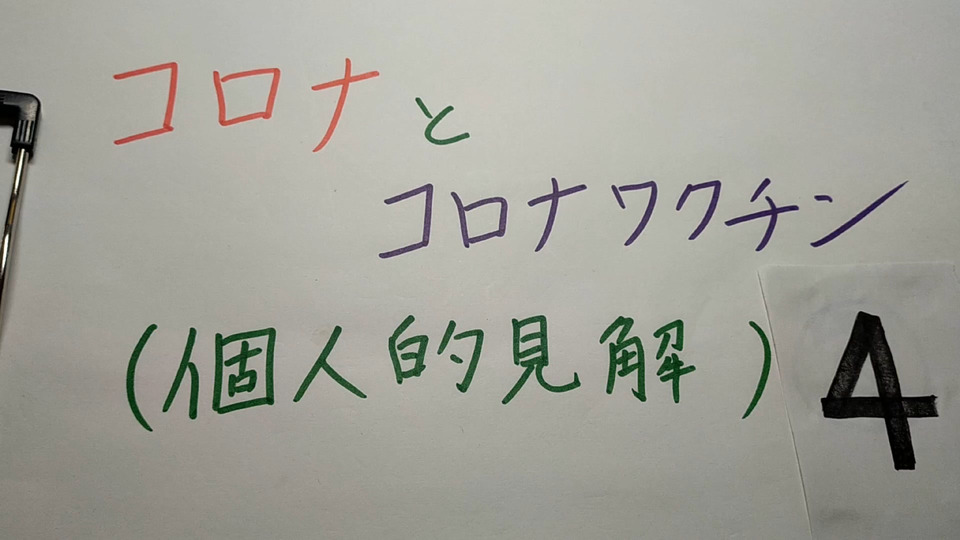 コロナと
コロナワクチン
(個人的見解)
4